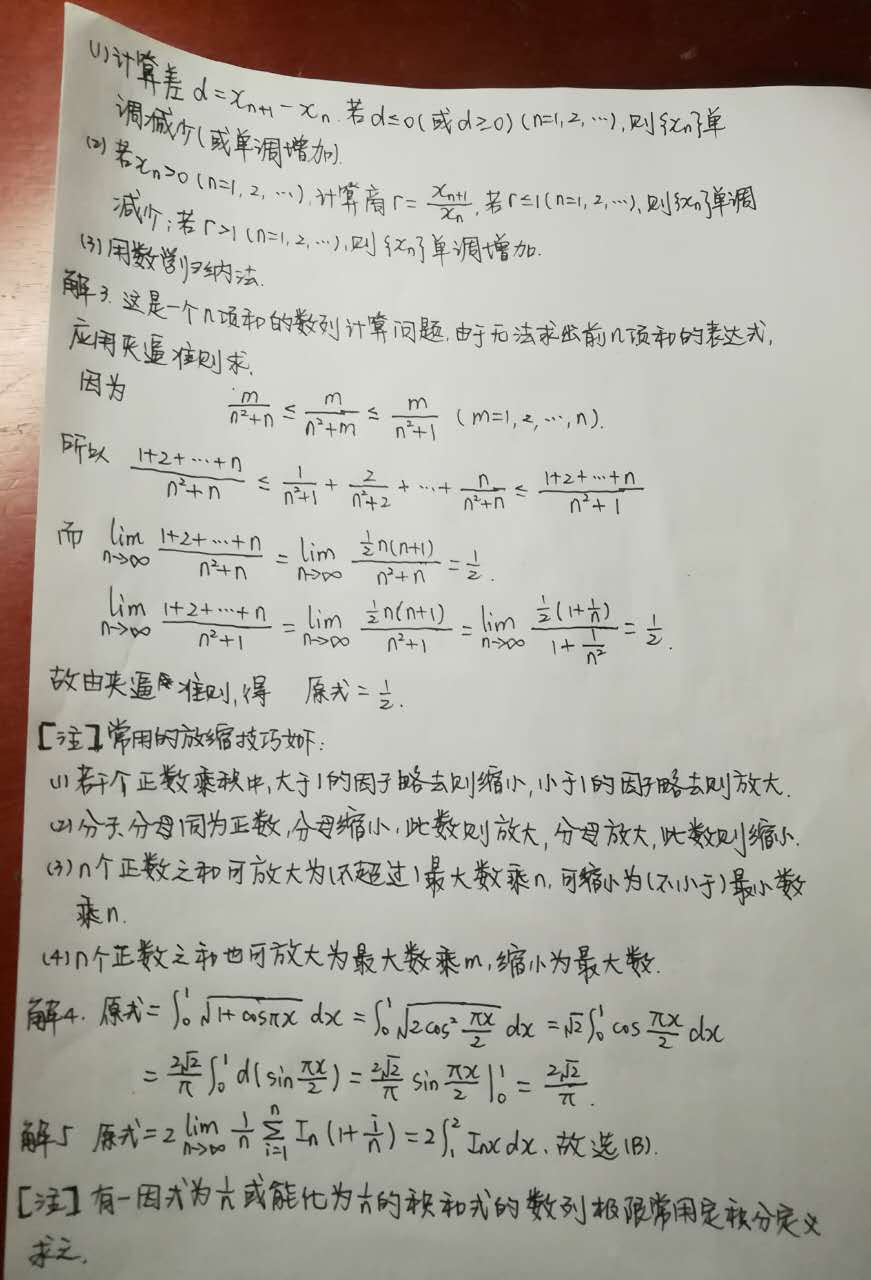 (1) 计算差 d = xₙ₊₁ - xₙ. 若 d ≤ 0 (或 d ≥ 0) (n=1, 2, …), 则{xₙ}单
调减少(或单调增加).
(2) 若 xₙ > 0 (n=1, 2, …), 计算商 r = xₙ₊₁/xₙ, 若 r ≤ 1 (n=1, 2, …), 则{xₙ}单调
减少; 若 r > 1 (n=1, 2, …), 则{xₙ}单调增加.
(3) 用数学归纳法.
解3. 这是一个n项和的数列计算问题, 由于无法求出前n项和的表达式,
应用夹逼准则求.
因为 m/(n²+n) ≤ m/(n²+m) ≤ m/(n²+1) (m=1, 2, …, n).
所以 (1+2+…+n)/(n²+n) ≤ 1/(n²+1) + 2/(n²+2) + … + n/(n²+n) ≤ (1+2+…+n)/(n²+1)
而 lim_{n→∞} (1+2+…+n)/(n²+n) = lim_{n→∞} (½n(n+1))/(n²+n) = ½.
lim_{n→∞} (1+2+…+n)/(n²+1) = lim_{n→∞} (½n(n+1))/(n²+1) = lim_{n→∞} (½(1+1/n))/(1+1/n²) = ½.
故由夹逼准则, 得 原式 = ½.
[注] 常用的放缩技巧如下:
(1) 若干个正数乘积中, 大于1的因子略去则缩小, 小于1的因子略去则放大.
(2) 分子、分母同为正数, 分母缩小, 此数则放大, 分母放大, 此数则缩小.
(3) n个正数之和可放大为(不超过)最大数乘n, 可缩小为(不小于)最小数
乘n.
(4) n个正数之和也可放大为最大数乘m, 缩小为最大数.
解4. 原式 = ∫₀¹ √(1+cosπx) dx = ∫₀¹ √(2cos²(πx/2)) dx = √2 ∫₀¹ cos(πx/2) dx
= (2√2/π) ∫₀¹ d(sin(πx/2)) = (2√2/π) sin(πx/2) |₀¹ = 2√2/π.
解5 原式 = 2 lim_{n→∞} (1/n) Σ_{i=1}^{n} In(1+i/n) = 2∫₁² Inx dx. 故选(B).
[注] 有一因式为1/n或能化为1/n的积和式的数列极限常用定积分定义
求之.